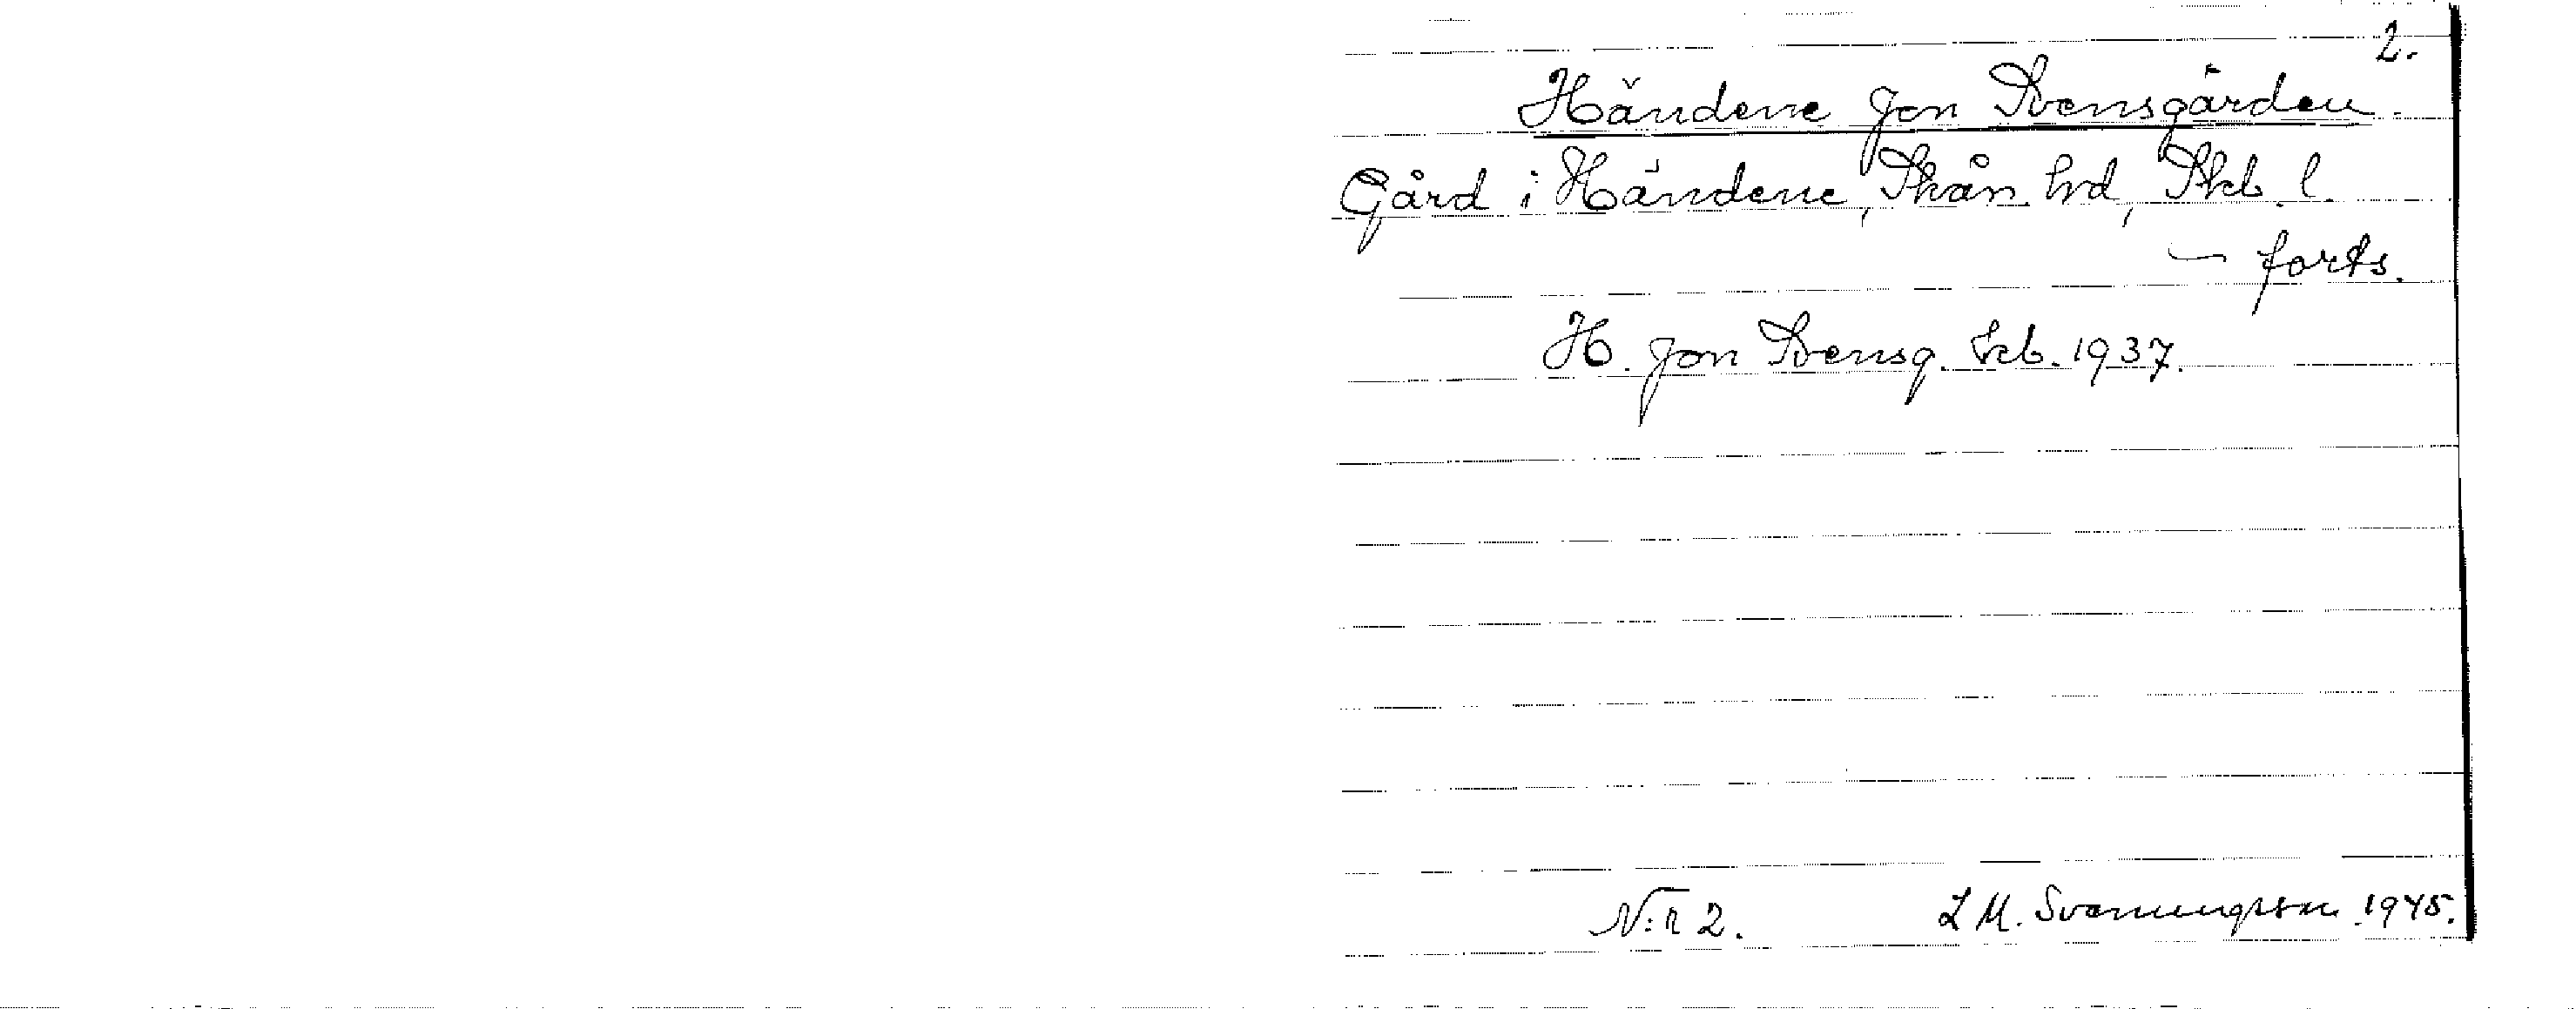 2.
Händene Jon Svensgården
Gård i Händene, Skån. hd, Skb. l.
— forts.
H. Jon Svensg. Ekb. 1937.
N:r 2. L M. Svenungsson 1945.